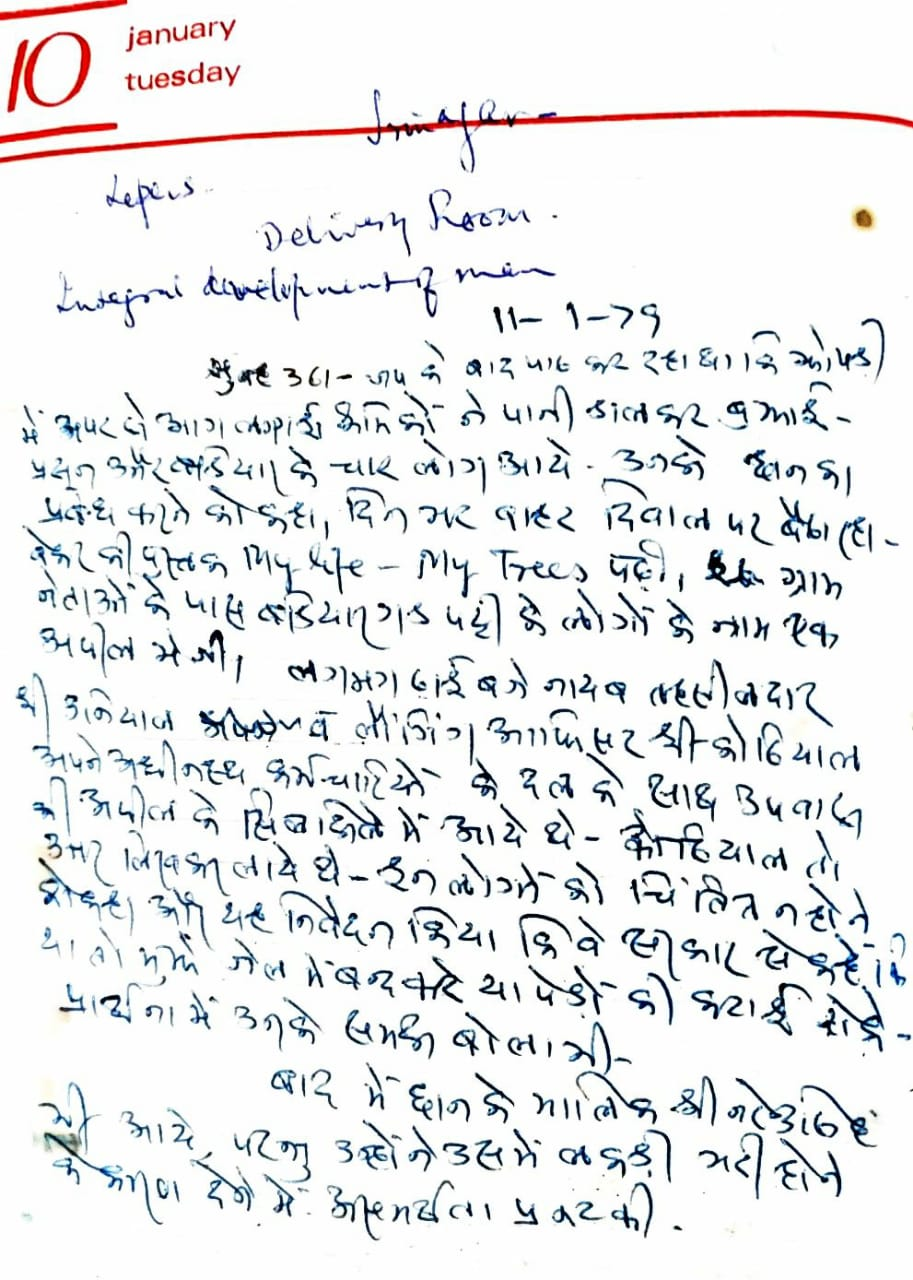 10
january
tuesday
Srinagar -
Lepers.
Delivery Room.
Integral development of man
11-1-79
सुबह उठा - जप के बाद पाठ कर रहा था कि झोपड़ी
में ऊपर से आग श्रमिकों ने पानी डालकर बुझाई -
प्रद्युम्न और के चार लोग आये. उनको खाने का
प्रबन्ध करने को कहा, दिन भर बाहर दिवाल पर बैठा रहा -
बेकर की पुस्तक My Life - My Trees पढ़ी, ग्राम
नेताओं के पास बडियारगड पट्टी के लोगों के नाम एक
अपील भेजी, लगभग ढाई बजे नायब तहसीलदार
श्री उनियाल व लौगिंग आफिसर श्री कोठियाल
अपने अधीनस्थ कर्मचारियों के दल के साथ उपवास
की अपील के सिलसिले में आये थे - कोठियाल तो
उत्तर लिखकर लाये थे - इन लोगों को चिंतित न होने
को कहा और यह निवेदन किया कि वे सरकार से कहें कि
या तो मुझे जेल में बन्द करे या पेड़ों की कटाई रोके -
प्रार्थना में उनके समक्ष बोला भी -
बाद में छान के मालिक श्री
भी आये, परन्तु उन्होंने उसमें लकड़ी भरी होने
के कारण देने में असमर्थता प्रकट की.